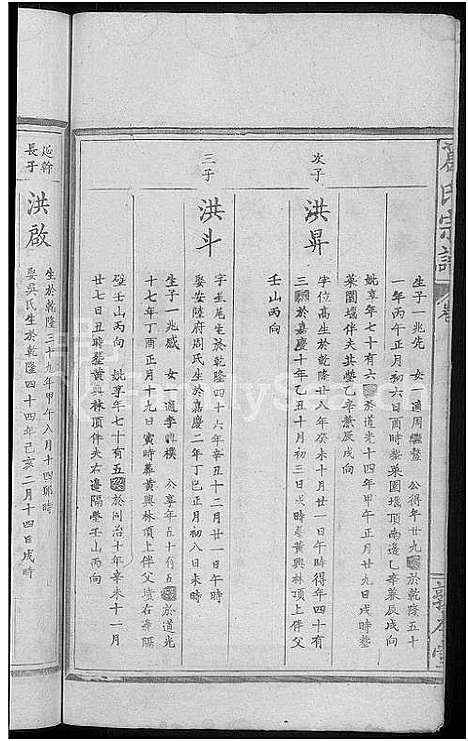 葛氏宗譜
卷
敦
堂
生子一兆先 女一適周繼 公得年廿九 於乾隆五十
一年丙午正月初六日酉時 菜園堰頂南邊乙辛兼辰戌向
姚享年七十有六 於道光十四年甲午正月廿九日戌時塟
菜園堰伴夫共塋乙辛兼辰戌向
次子
洪昇
字位高生於乾隆廿八年癸未十月廿一日午時得年四十有
三 於嘉慶十年乙丑十月初三日戌時塟黃興林頂上伴父
壬山丙向
三子
洪斗
字 生於乾隆四十六年辛丑十二月廿一日午時
娶安陸府周氏生於嘉慶二年丁巳正月初八日未時
生子一兆盛 女一適李興樸 公享年五十有五 於道光
十七年丁酉正月十九日寅時葬黃興林頂上伴父墳右平隔
壬山丙向 姚享年七十有五 於同治十年辛未十一月
廿七日丑時塟黃興林頂伴夫右邊隔塋壬山丙向
延幹
長子
洪啟
生於乾隆三十九年甲午八月十四卯時
娶吳氏生於乾隆四十四年己亥二月十四日戌時